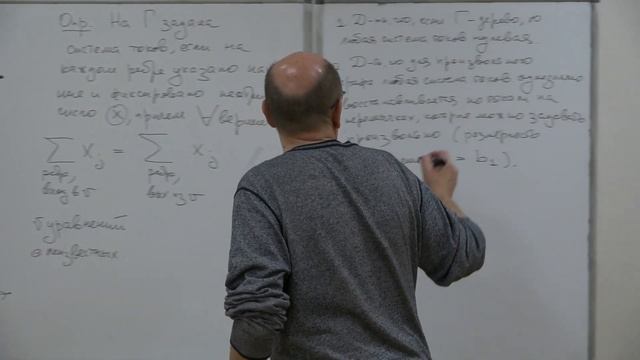 Опр. На Г задана
система токов, если на
каждом ребре указано на
ние и фиксировано
число x, причем ∀ верши
∑ x_j = ∑ x_j
ребра, ребра,
вход в v вых из v
б уравнений
неизвестных
1. Д-ть, что, если Г-дерево, то
любая система токов нулевая.
Д-ть, что для произвольного
графа любая система токов однозначно
по токам на
перемычках, которые можно задавать
произвольно (размерность
= b₁).